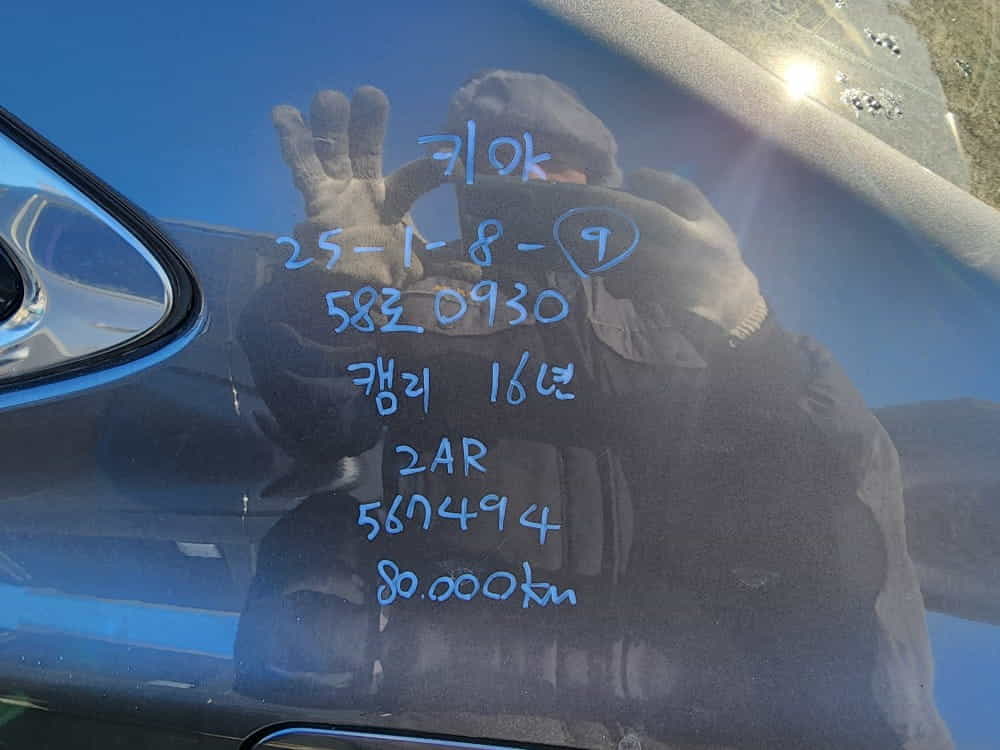 키아
25-1-8-9
58로0930
캠리 16년
2AR
567494
80.000km